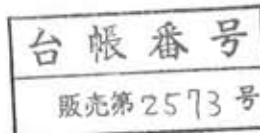 台帳番号
販売第2573号